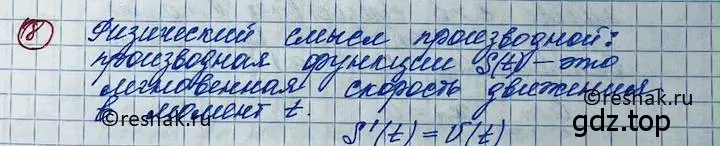 8 Физический смысл производной:
производная функции S(t) – это
мгновенная скорость движения
в момент t.
S'(t) = υ(t)
©reshak.ru
©reshak.ru
gdz.top